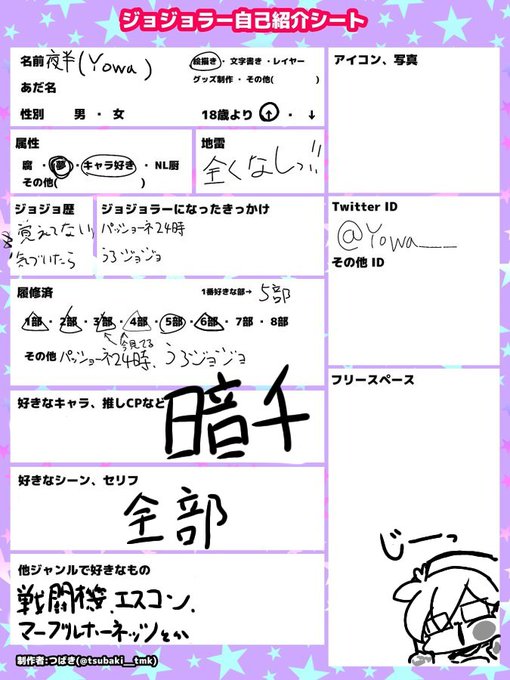 ジョジョラー自己紹介シート
名前 夜半(Yowa)
絵描き・文字書き・レイヤー
グッズ制作・その他( )
あだ名
性別 男・女
18歳より ↑・↓
属性
腐・夢・キャラ好き・NL厨
その他( )
地雷
全くなしッ!!
ジョジョ歴
覚えてない
気づいたら
ジョジョラーになったきっかけ
パッショーネ24時
うろジョジョ
履修済
1番好きな部→ 5部
1部・2部・3部・4部・5部・6部・7部・8部
今見てる
その他 パッショーネ24時、うろジョジョ
好きなキャラ、推しCPなど
暗千
好きなシーン、セリフ
全部
他ジャンルで好きなもの
戦闘機、エスコン、
マーブルホーネッツとか
アイコン、写真
Twitter ID
@Yowa___
その他 ID
フリースペース
じーっ
制作者:つばき(@tsubaki__tmk)